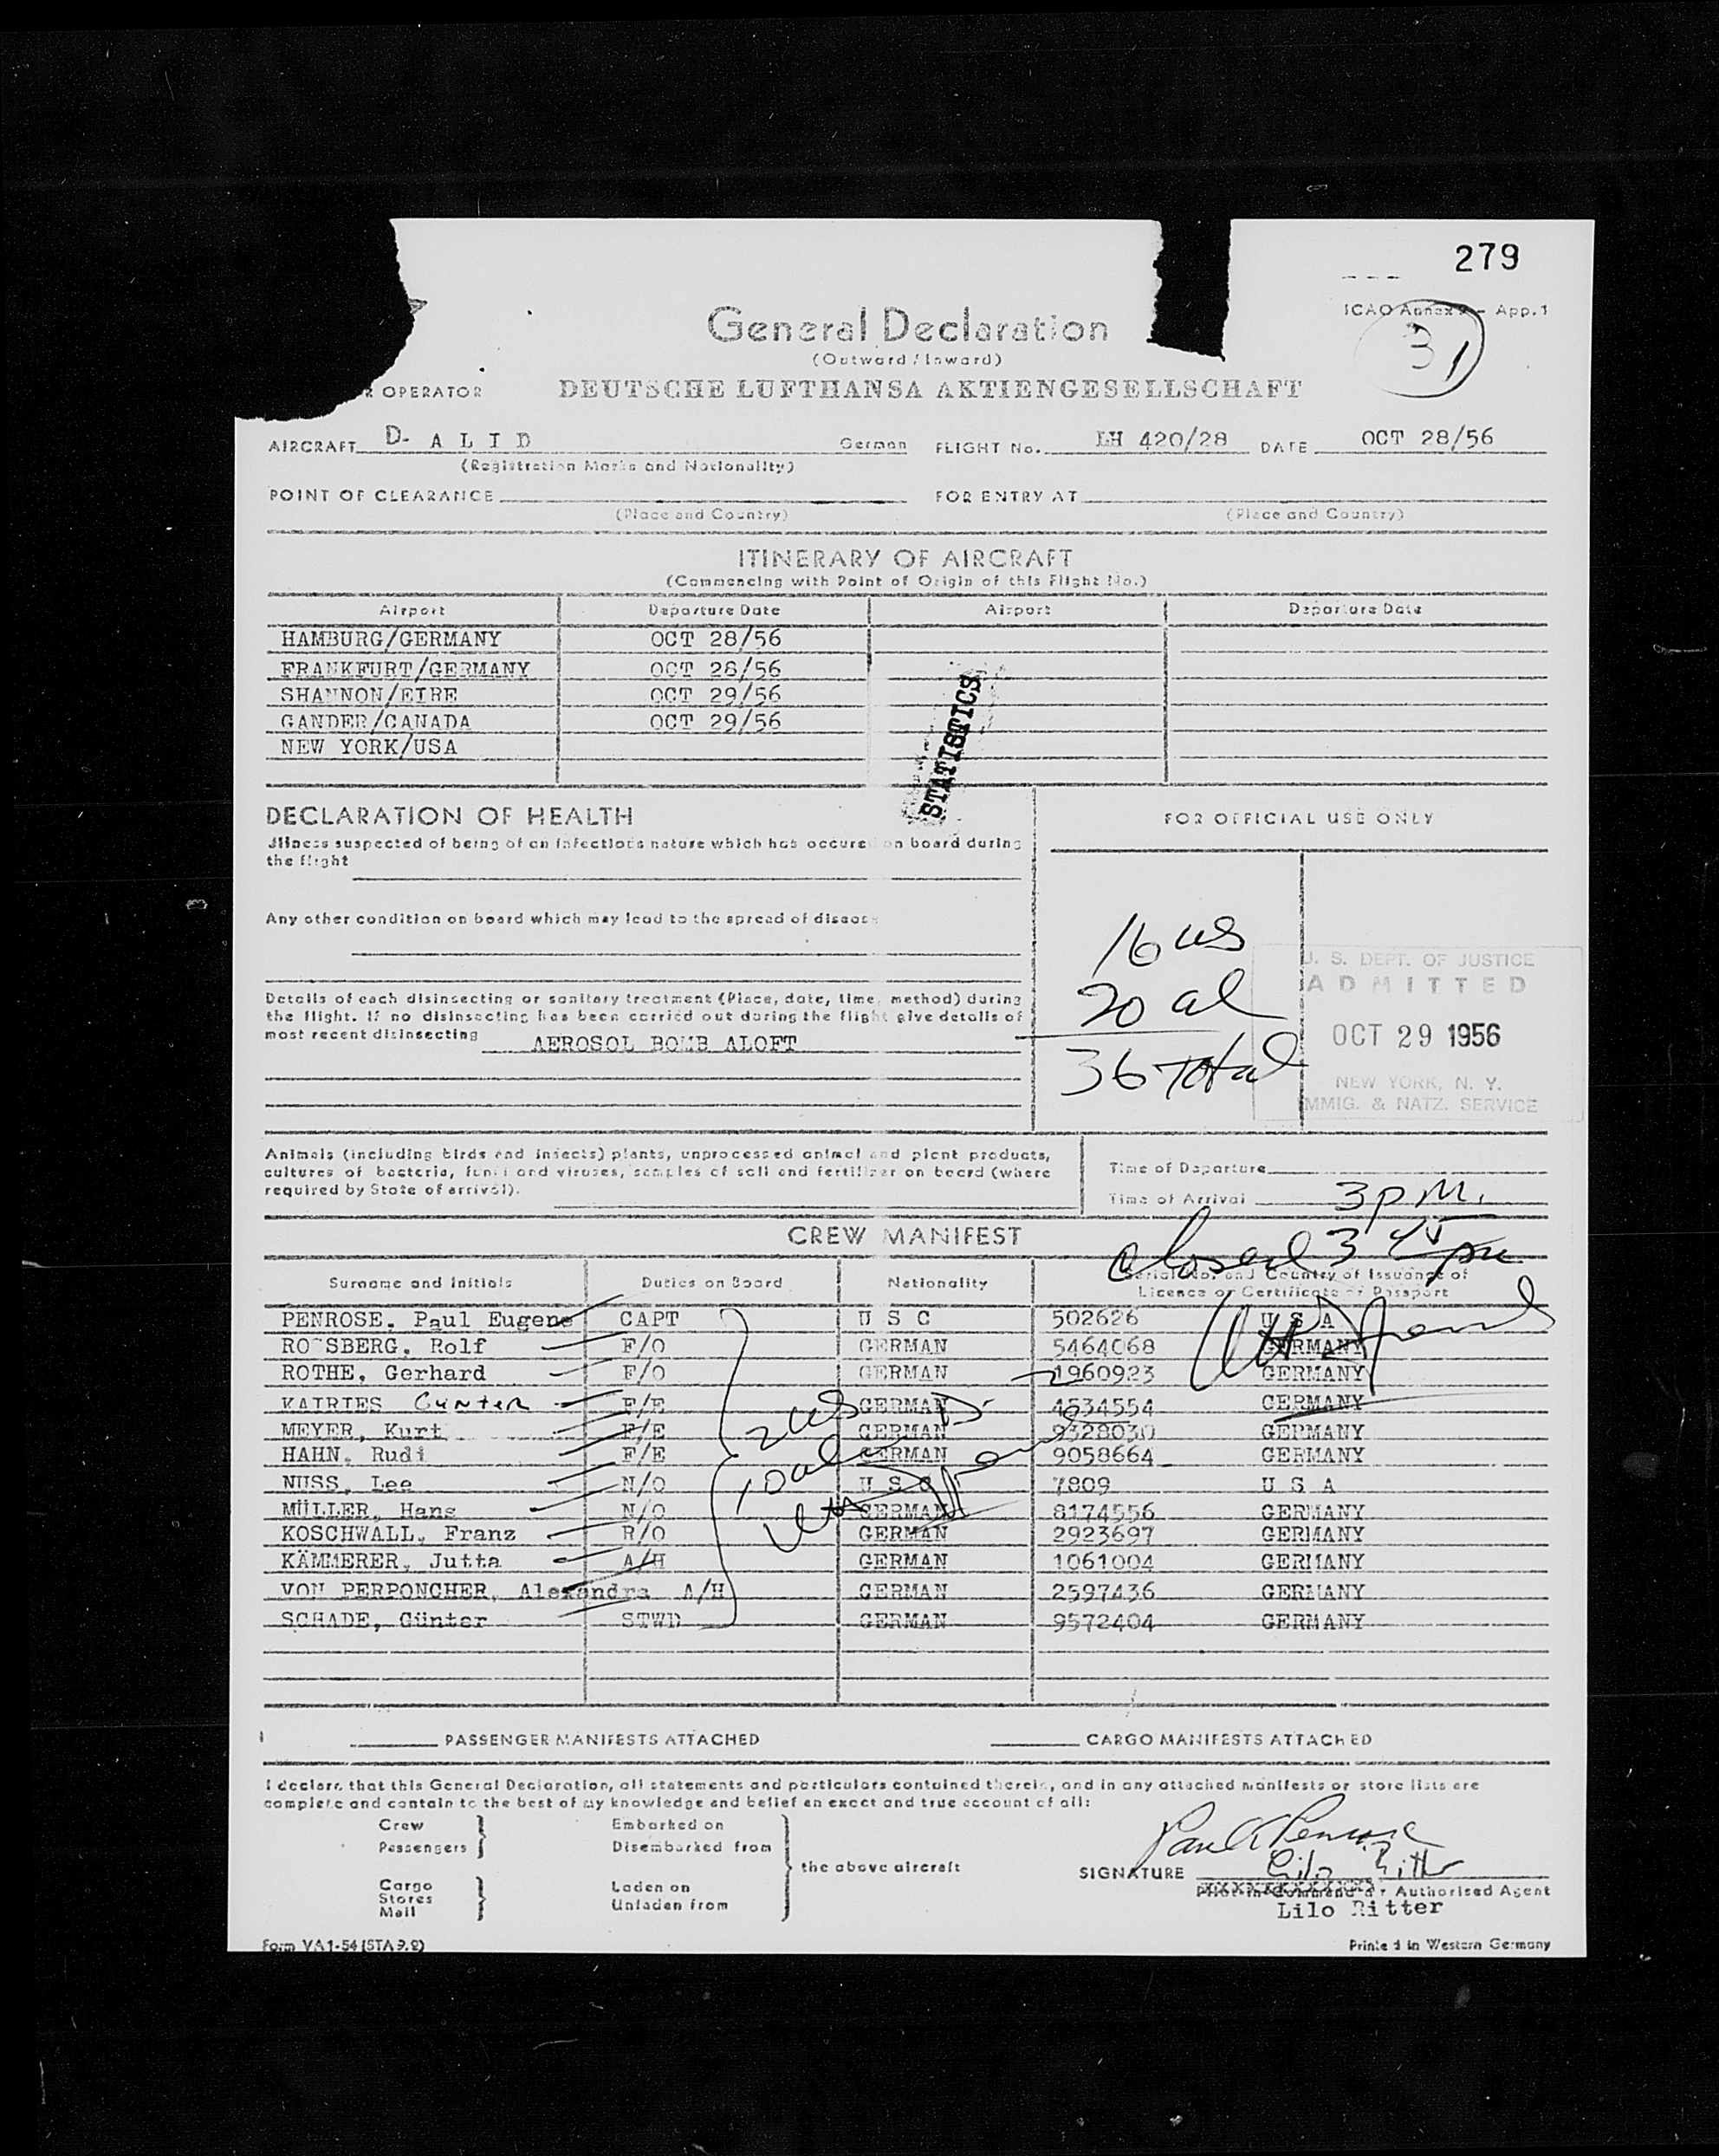 279
ICAO Annex 9 - App. 1
31
General Declaration
(Outward / Inward)
OPERATOR DEUTSCHE LUFTHANSA AKTIENGESELLSCHAFT
AIRCRAFT D- A L I D German FLIGHT No. LH 420/28 DATE OCT 28/56
(Registration Marks and Nationality)
POINT OF CLEARANCE FOR ENTRY AT
(Place and Country) (Place and Country)
ITINERARY OF AIRCRAFT
(Commencing with Point of Origin of this Flight No.)
Airport Departure Date Airport Departure Date
HAMBURG/GERMANY OCT 28/56
FRANKFURT/GERMANY OCT 28/56
SHANNON/EIRE OCT 29/56
GANDER/CANADA OCT 29/56
NEW YORK/USA
STATISTICS
DECLARATION OF HEALTH
Illness suspected of being of an infectious nature which has occured on board during
the flight
Any other condition on board which may lead to the spread of disease
Details of each disinsecting or sanitary treatment (Place, date, time, method) during
the flight. If no disinsecting has been carried out during the flight give details of
most recent disinsecting AEROSOL BOMB ALOFT
FOR OFFICIAL USE ONLY
16 us
20 al
36 Total
U. S. DEPT. OF JUSTICE
ADMITTED
OCT 29 1956
NEW YORK, N. Y.
IMMIG. & NATZ. SERVICE
Animals (including birds and insects) plants, unprocessed animal and plant products,
cultures of bacteria, fungi and viruses, samples of soil and fertilizer on board (where
required by State of arrival).
Time of Departure
Time of Arrival 3 p.m.
closed 3 45 pm
CREW MANIFEST
Surname and initials Duties on Board Nationality Serial No. and Country of Issuance of
Licence or Certificate or Passport
PENROSE. Paul Eugene CAPT U S C 502626 U S A
ROSSBERG, Rolf F/O GERMAN 5464068 GERMANY
ROTHE, Gerhard F/O GERMAN 1960923 GERMANY
KATRIES Günter F/E GERMAN 4534554 GERMANY
MEYER, Kurt F/E GERMAN 9328030 GERMANY
HAHN, Rudi F/E GERMAN 9058664 GERMANY
NUSS, Lee N/O U S C 7809 U S A
MÜLLER, Hans N/O GERMAN 8174556 GERMANY
KOSCHWALL, Franz R/O GERMAN 2923697 GERMANY
KÄMMERER, Jutta A/H GERMAN 1061004 GERMANY
VON PERPONCHER, Alexandra A/H GERMAN 2597436 GERMANY
SCHADE, Günter STWD GERMAN 9572404 GERMANY
2 us
10 al
PASSENGER MANIFESTS ATTACHED CARGO MANIFESTS ATTACHED
I declare that this General Declaration, all statements and particulars contained therein, and in any attached manifests or store lists are
complete and contain to the best of my knowledge and belief an exact and true account of all:
Crew Embarked on
Passengers Disembarked from
the above aircraft
Cargo Laden on
Stores
Mail Unladen from
Paul E Penrose
SIGNATURE Lilo Ritter
Pilot-in-Command or Authorised Agent
Lilo Ritter
Form VA1-54 (STA 9.2) Printed in Western Germany